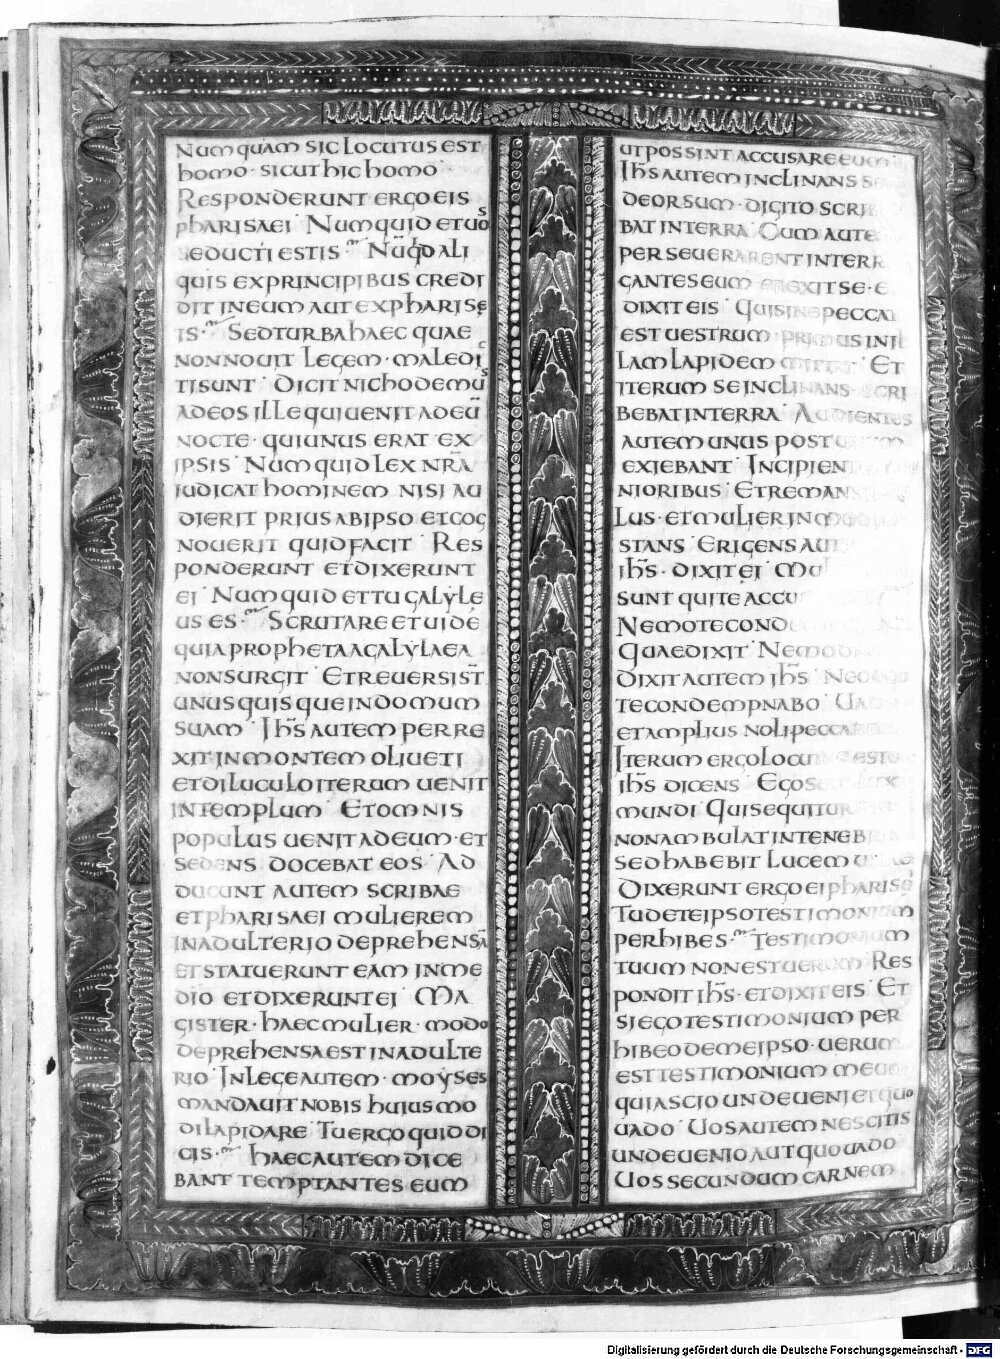 Numquam sic locutus est
homo· sicut hic homo·
Responderunt ergo eis
pharisaei· Numquid et uos
seducti estis· Nūqd ali
quis ex principibus credi
dit in eum aut ex pharisę
is· Sed turba haec quae
non nouit legem· maledic
ti sunt· Dicit nichodemus
ad eos ille qui uenit ad eū
nocte· qui unus erat ex
ipsis· Numquid lex nr̄a
iudicat hominem nisi au
dierit prius ab ipso et cog
nouerit quid facit· Res
ponderunt et dixerunt
ei· Numquid et tu galyle
us es· Scrutare et uide
quia propheta a galylaea
non surgit· Et reuersi st̄
unusquisque in domum
suam· Ih̄s autem perre
xit in montem oliueti
et diluculo iterum uenit
in templum· Et omnis
populus uenit ad eum· et
sedens docebat eos· Ad
ducunt autem scribae
et pharisaei mulierem
in adulterio deprehensā
et statuerunt eam in me
dio et dixerunt ei· Ma
gister· haec mulier· modo
deprehensa est in adulte
rio· In lege autem· moyses
mandauit nobis huiusmo
di lapidare· Tu ergo quid di
cis· haec autem dice
bant temptantes eum
ut possint accusare eum·
Ih̄s autem inclinans se
deorsum· digito scri
bat in terra· Cum aute
perseuerarent interr
gantes eum erexit se· e
dixit eis· Qui sine pecca
est uestrum· primus in il
lam lapidem mittat· Et
iterum se inclinans· scri
bebat in terra· Audientes
autem unus post unum
exiebant· Incipien
nioribus· Et reman
lus· et mulier in
stans· Erigens aut
ih̄s· dixit ei· Mul
sunt qui te accu
Nemo te conde
Quae dixit· Nemo
Dixit autem ih̄s· Nec ego
te condempnabo· Uad
et amplius noli peccare
Iterum ergo locu est
ih̄s dicens· Ego su lux
mundi· Qui sequitur
non ambulat in teneb
sed habebit lucem
Dixerunt ergo ei pharisęi
Tu de te ipso testimonium
perhibes· testimonium
tuum non est uerum· Res
pondit ih̄s· et dixit eis· Et
si ego testimonium per
hibeo de me ipso· uerum
est testimonium meum
quia scio unde ueni et quo
uado· Uos autem nescitis
unde uenio aut quo uado·
Uos secundum carnem
Digitalisierung gefördert durch die Deutsche Forschungsgemeinschaft - DFG